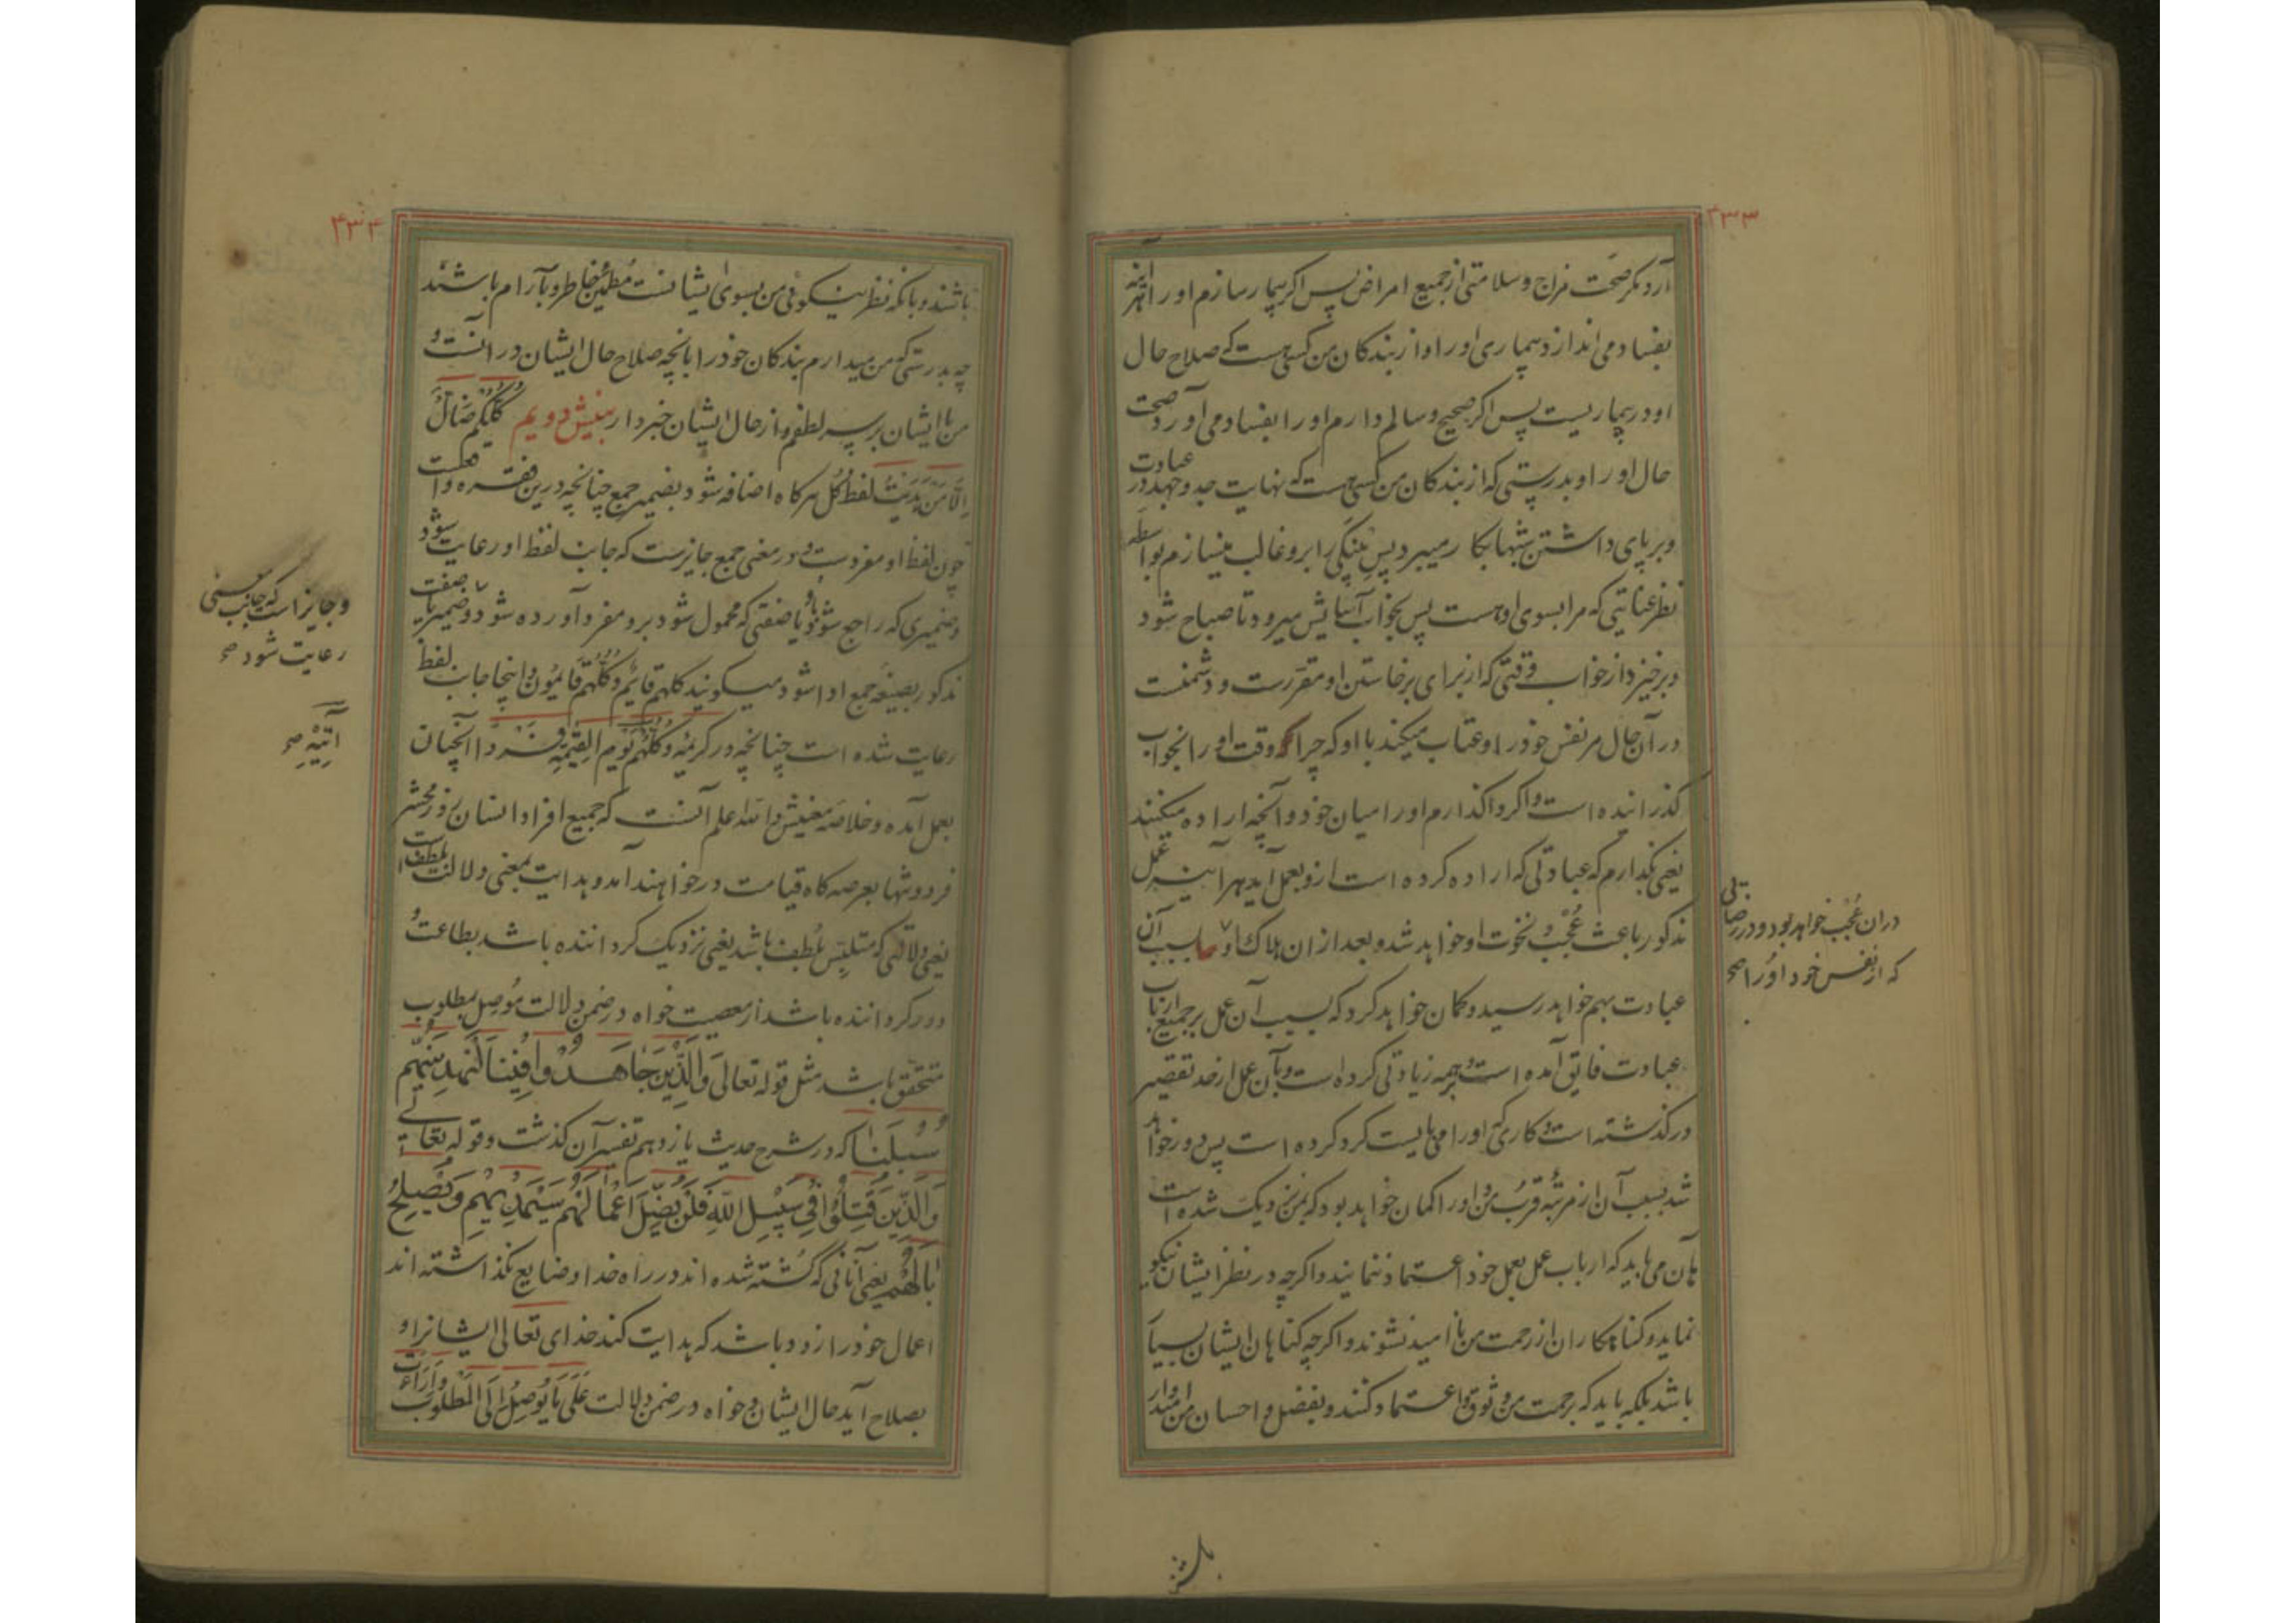 ۴۳۳
آرد مگر صحّت مزاج و سلامتی از جمیع امراض پس اگر بیمار سازم او را هر آینه
بفساد می اندازد بیماری او را و از بندکان من کسی هست که صلاح حال
او در بیماریست پس اگر صحیح و سالم دارم او را بفساد می آورد صحت
حال او را و بدرستی که از بندکان من کسی هست که نهایت جد و جهد در عبادت
و بر پای داشتن شبها بکار میبرد پس پینکی را برو غالب میسازم بواسطه
نظر عنایتی که مرا بسوی او هست پس بخواب آسایش میرود تا صباح شود
و برخیزد از خواب وقتی که از برای برخاستن او مقررست و دشمنست
در آن حال مر نفس خود را و عتاب میکند با او که چرا که وقت او را بخواب
کذرانیده است و اکر واکذارم او را میان خود و آنچه اراده میکند
یعنی بکذارم که عبادتی که اراده کرده است ازو بعمل آید هر آینه عمل
مذکور باعث عُجْب و نخوت او خواهد شد و بعد از ان هلاک او بسبب آن
عبادت بهم خواهد رسید و کمان خواهد کرد که بسبب آن عمل بر جمیع ارباب
عبادت فایق آمده است و بر همه زیادتی کرده است و بآن عمل از حد تقصیر
در کذشته است و کاری که او را می بایست کرد کرده است پس دور خواهد
شد بسبب آن از مرتبه قرب من و او را کمان خواهد بود که بمن نزدیک شده است
هان می باید که ارباب عمل بعمل خود اعتماد ننمایند و اکرچه در نظر ایشان نیکو
نماید و کناهکاران از رحمت من نا امید نشوند و اکرچه کناهان ایشان بسیار
باشد بلکه باید که برحمت من وثوق و اعتماد کنند و بفضل و احسان من امیدوار
در ان عُجْب خواهد بود و در رضایی
که از نفس خود او را صح
باشند
۴۳۴
باشند و بآنکه نظر نیکوئی من بسوی ایشانست مطمئن خاطر و بآرام باشند
چه بدرستی که من میدارم بندکان خود را بآنچه صلاح حال ایشان در آنست و
من با ایشان بر سر لطفم و از حال ایشان خبردار بینش دویم کُلُّكُمْ ضَالٌّ
اِلّا مَنْ هَدَيْتُ لفظ کُل هرکاه اضافه شود بضمیر جمع چنانچه درین فقره واقعست
چون لفظ او مفردست و در معنی جمع جایزست که جانب لفظ او رعایت شود
و ضمیری که راجع شود باو یا صفتی که محمول شود برو مفرد آورده شود و ضمیر یا صفت
مذکور بصیغه جمع ادا شود میکویند کلهم قائم و کلهم قائمون و اینجا جانب لفظ
رعایت شده است چنانچه در کریمه وَكُلُّهُمْ يَوْمَ الْقِيٰمَةِ فَرْدًا آنچنان
بعمل آمده و خلاصه معنیش و الله اعلم آنست که جمیع افراد انسان روز محشر
فرد و تنها بعرصه کاه قیامت در خواهند آمد و هدایت بمعنی دلالت بلطفست
یعنی دلالتی که متلبس بلطف باشد یعنی نزدیک کرداننده باشد بطاعت و
دور کرداننده باشد از معصیت خواه در ضمن دلالت موصل بمطلوب
متحقق باشد مثل قوله تعالی وَالَّذِينَ جَاهَدُوا فِينَا لَنَهْدِيَنَّهُمْ
سُبُلَنَا که در شرح حدیث یازدهم تفسیر آن کذشت و قوله تعالی
وَالَّذِينَ قُتِلُوا فِي سَبِيلِ اللّٰهِ فَلَنْ يُضِلَّ اَعْمَالَهُمْ سَيَهْدِيهِمْ وَيُصْلِحُ
بَالَهُمْ یعنی آنانی که کشته شده اند در راه خدا و ضایع نکذاشته اند
اعمال خود را زود باشد که هدایت کند خدای تعالی ایشانرا و
بصلاح آید حال ایشان و خواه در ضمن دلالت عَلَى مَا يُوصِلُ اِلَى الْمَطْلُوبِ
و جایز است که جانب معنی
رعایت شود صح
آتِيهِ صح